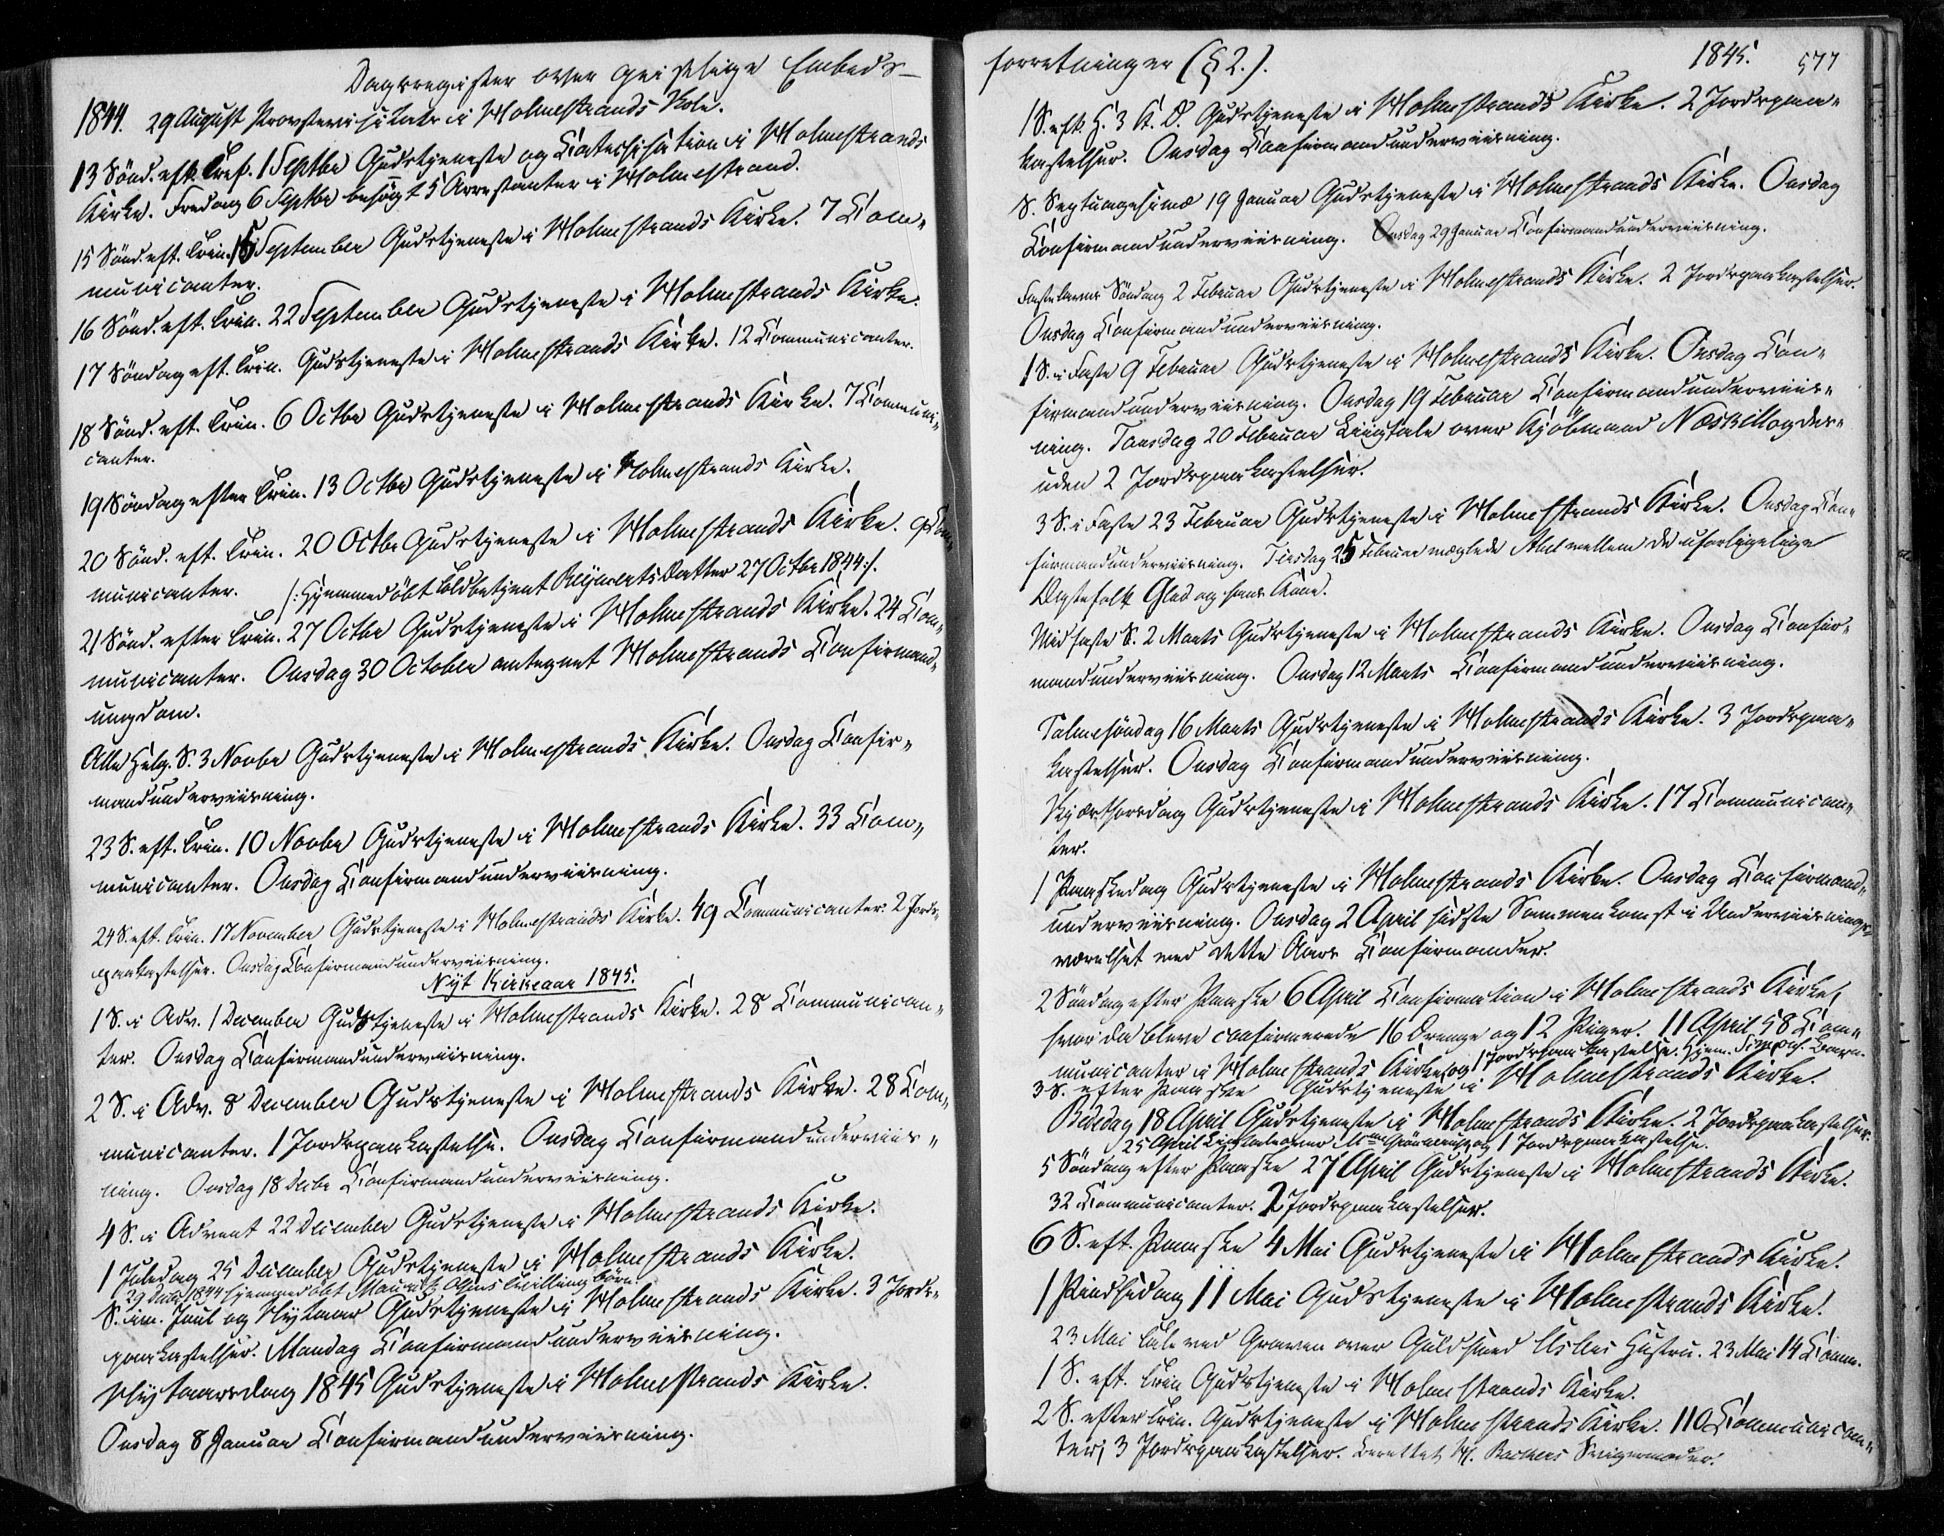 Dagsregister over geistlige Embeds-
1844. 29 August Provstevisitats i Holmestrands Skole.
13 Sønd. eft. Tref. 1 Septbr Gudstjeneste og Catechisation i Holmestrands
Kirke. Fredag 6 Septbr besøgt 5 Arrestanter i Holmestrand.
15 Sønd. eft. Trin. 15 September Gudstjeneste i Holmestrands Kirke. 7 Com-
municanter.
16 Sønd. eft. Trin. 22 September Gudstjeneste i Holmestrands Kirke.
17 Søndag eft. Trin. Gudstjeneste i Holmestrands Kirke. 12 Communicanter.
18 Sønd. eft. Trin. 6 Octbr Gudstjeneste i Holmestrands Kirke. 7 Communi-
canter.
19 Søndag efter Trin. 13 Octbr Gudstjeneste i Holmestrands Kirke.
20 Sønd. eft. Trin. 20 Octbr Gudstjeneste i Holmestrands Kirke. 9 Com-
municanter. /: Hjemmedøbt Toldbetjent Reymerts Datter 27 Octbr 1844 :/.
21 Sønd. efter Trin. 27 Octbr Gudstjeneste i Holmestrands Kirke. 24 Com-
municanter. Onsdag 30 October antegnet Holmestrands Confirmand-
ungdom.
Alle Helg. S. 3 Novbr Gudstjeneste i Holmestrands Kirke. Onsdag Confir-
mandunderviisning.
23 S. eft. Trin. 10 Novbr Gudstjeneste i Holmestrands Kirke. 33 Com-
municanter. Onsdag Confirmandunderviisning.
24 S. eft. Trin. 17 November Gudstjeneste i Holmestrands Kirke. 49 Communicanter. 2 Jords-
paakastelser. Onsdag Confirmandunderviisning.
Nyt Kirkeaar 1845.
1 S. i Adv. 1 December Gudstjeneste i Holmestrands Kirke. 28 Communican-
ter. Onsdag Confirmandunderviisning.
2 S. i Adv. 8 December Gudstjeneste i Holmestrands Kirke. 28 Com-
municanter. 1 Jordspaakastelse. Onsdag Confirmandunderviis-
ning. Onsdag 18 Decbr Confirmandunderviisning.
4 S. i Advent 22 December Gudstjeneste i Holmestrands Kirke.
1 Juledag 25 December Gudstjeneste i Holmestrands Kirke.
29 Decbr 1844 hjemmedøbt Tvillingbørn
S. im. Juul og Nytaar Gudstjeneste i Holmestrands Kirke. 3 Jords-
paakastelser. Mandag Confirmandunderviisning.
Nytaarsdag 1845 Gudstjeneste i Holmestrands Kirke.
Onsdag 8 Januar Confirmandunderviisning.
forretninger (§ 2.). 1845. 577
1 S. eft. H. 3 K. D. Gudstjeneste i Holmestrands Kirke. 2 Jordspaa-
kastelser. Onsdag Confirmandunderviisning.
S. Septuagesimæ 19 Januar Gudstjeneste i Holmestrands Kirke. Onsdag
Confirmandunderviisning. Onsdag 29 Januar Confirmandunderviisning.
Fastelavns Søndag 2 Februar Gudstjeneste i Holmestrands Kirke. 2 Jordspaakastelser.
Onsdag Confirmandunderviisning.
1 S. i Faste 9 Februar Gudstjeneste i Holmestrands Kirke. Onsdag Con-
firmandunderviisning. Onsdag 19 Februar Confirmandunderviis-
ning. Torsdag 20 Februar Liigtale over Kjøbmand og des-
uden 2 Jordspaakastelser.
3 S. i Faste 23 Februar Gudstjeneste i Holmestrands Kirke. Onsdag Con-
firmandunderviisning. Tirsdag 25 Februar mæglede mellem de uforligelige
Ægtefolk Glad og hans Kone.
Midfaste S. 2 Marts Gudstjeneste i Holmestrands Kirke. Onsdag Confir-
mandunderviisning. Onsdag 12 Marts Confirmandunderviisning.
Palmesøndag 16 Marts Gudstjeneste i Holmestrands Kirke. 3 Jordspaa-
kastelser. Onsdag Confirmandunderviisning.
Skjærthorsdag Gudstjeneste i Holmestrands Kirke. 17 Communican-
ter.
1 Paaskedag Gudstjeneste i Holmestrands Kirke. Onsdag Confirmand-
underviisning. Onsdag 2 April sidste Sammenkomst i Underviisnings-
værelset med dette Aars Confirmander.
2 Søndag efter Paaske 6 April Confirmation i Holmestrands Kirke,
hvor da bleve confirmerede 16 Drenge og 12 Piger. 11 April 58 Com-
municanter i Holmestrands Kirke, og 1 Jordspaakastelse. Hjem. Barn.
3 S. efter Paaske Gudstjeneste i Holmestrands Kirke.
Bededag 18 April Gudstjeneste i Holmestrands Kirke. 2 Jordspaakastelser.
25 April Liigtale over og 1 Jordspaakastelse.
5 Søndag efter Paaske 27 April Gudstjeneste i Holmestrands Kirke.
32 Communicanter. 2 Jordspaakastelser.
6 S. eft. Paaske 4 Mai Gudstjeneste i Holmestrands Kirke.
1 Pindsedag 11 Mai Gudstjeneste i Holmestrands Kirke.
23 Mai Tale ved Graven over Guldsmed Hustru. 23 Mai 14 Comm.
1 S. eft. Trin Gudstjeneste i Holmestrands Kirke.
2 S. efter Trin. Gudstjeneste i Holmestrands Kirke. 110 Communican-
ter, 3 Jordspaakastelser. Berettet Svigermoder.